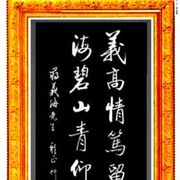 義高情篤留
海碧山青仰
蔣義海先生 雅正